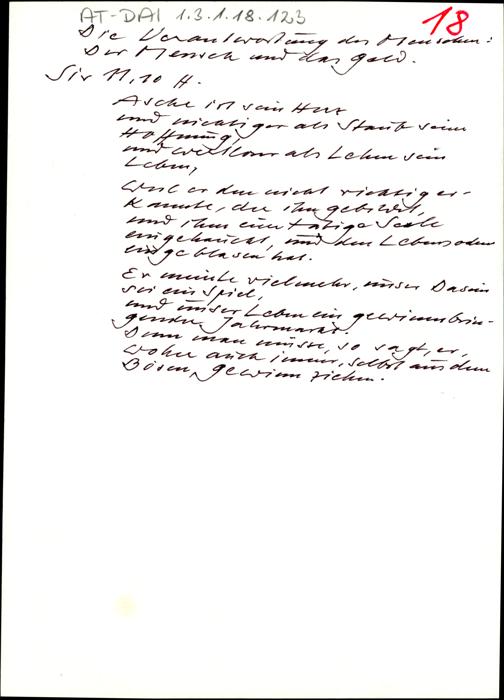 AT-DAI 1.3.1.18.123
18
Die Verantwortung des Menschen:
Der Mensch und das Geld.
Sir 11,10 ff.
Asche ist sein Herz
und nichtiger als Staub seine
Hoffnung,
und wertloser als Lehm sein
Leben,
weil er den nicht richtig er-
kannte, der ihn gebildet,
und ihm eine tätige Seele
eingehaucht, und den Lebensodem
eingeblasen hat.
Er meinte vielmehr, unser Dasein
sei ein Spiel,
und unser Leben ein gewinnbrin-
gender Jahrmarkt.
Denn man müsse, so sagt er,
woher auch immer, selbst aus dem
Bösen, Gewinn ziehen.